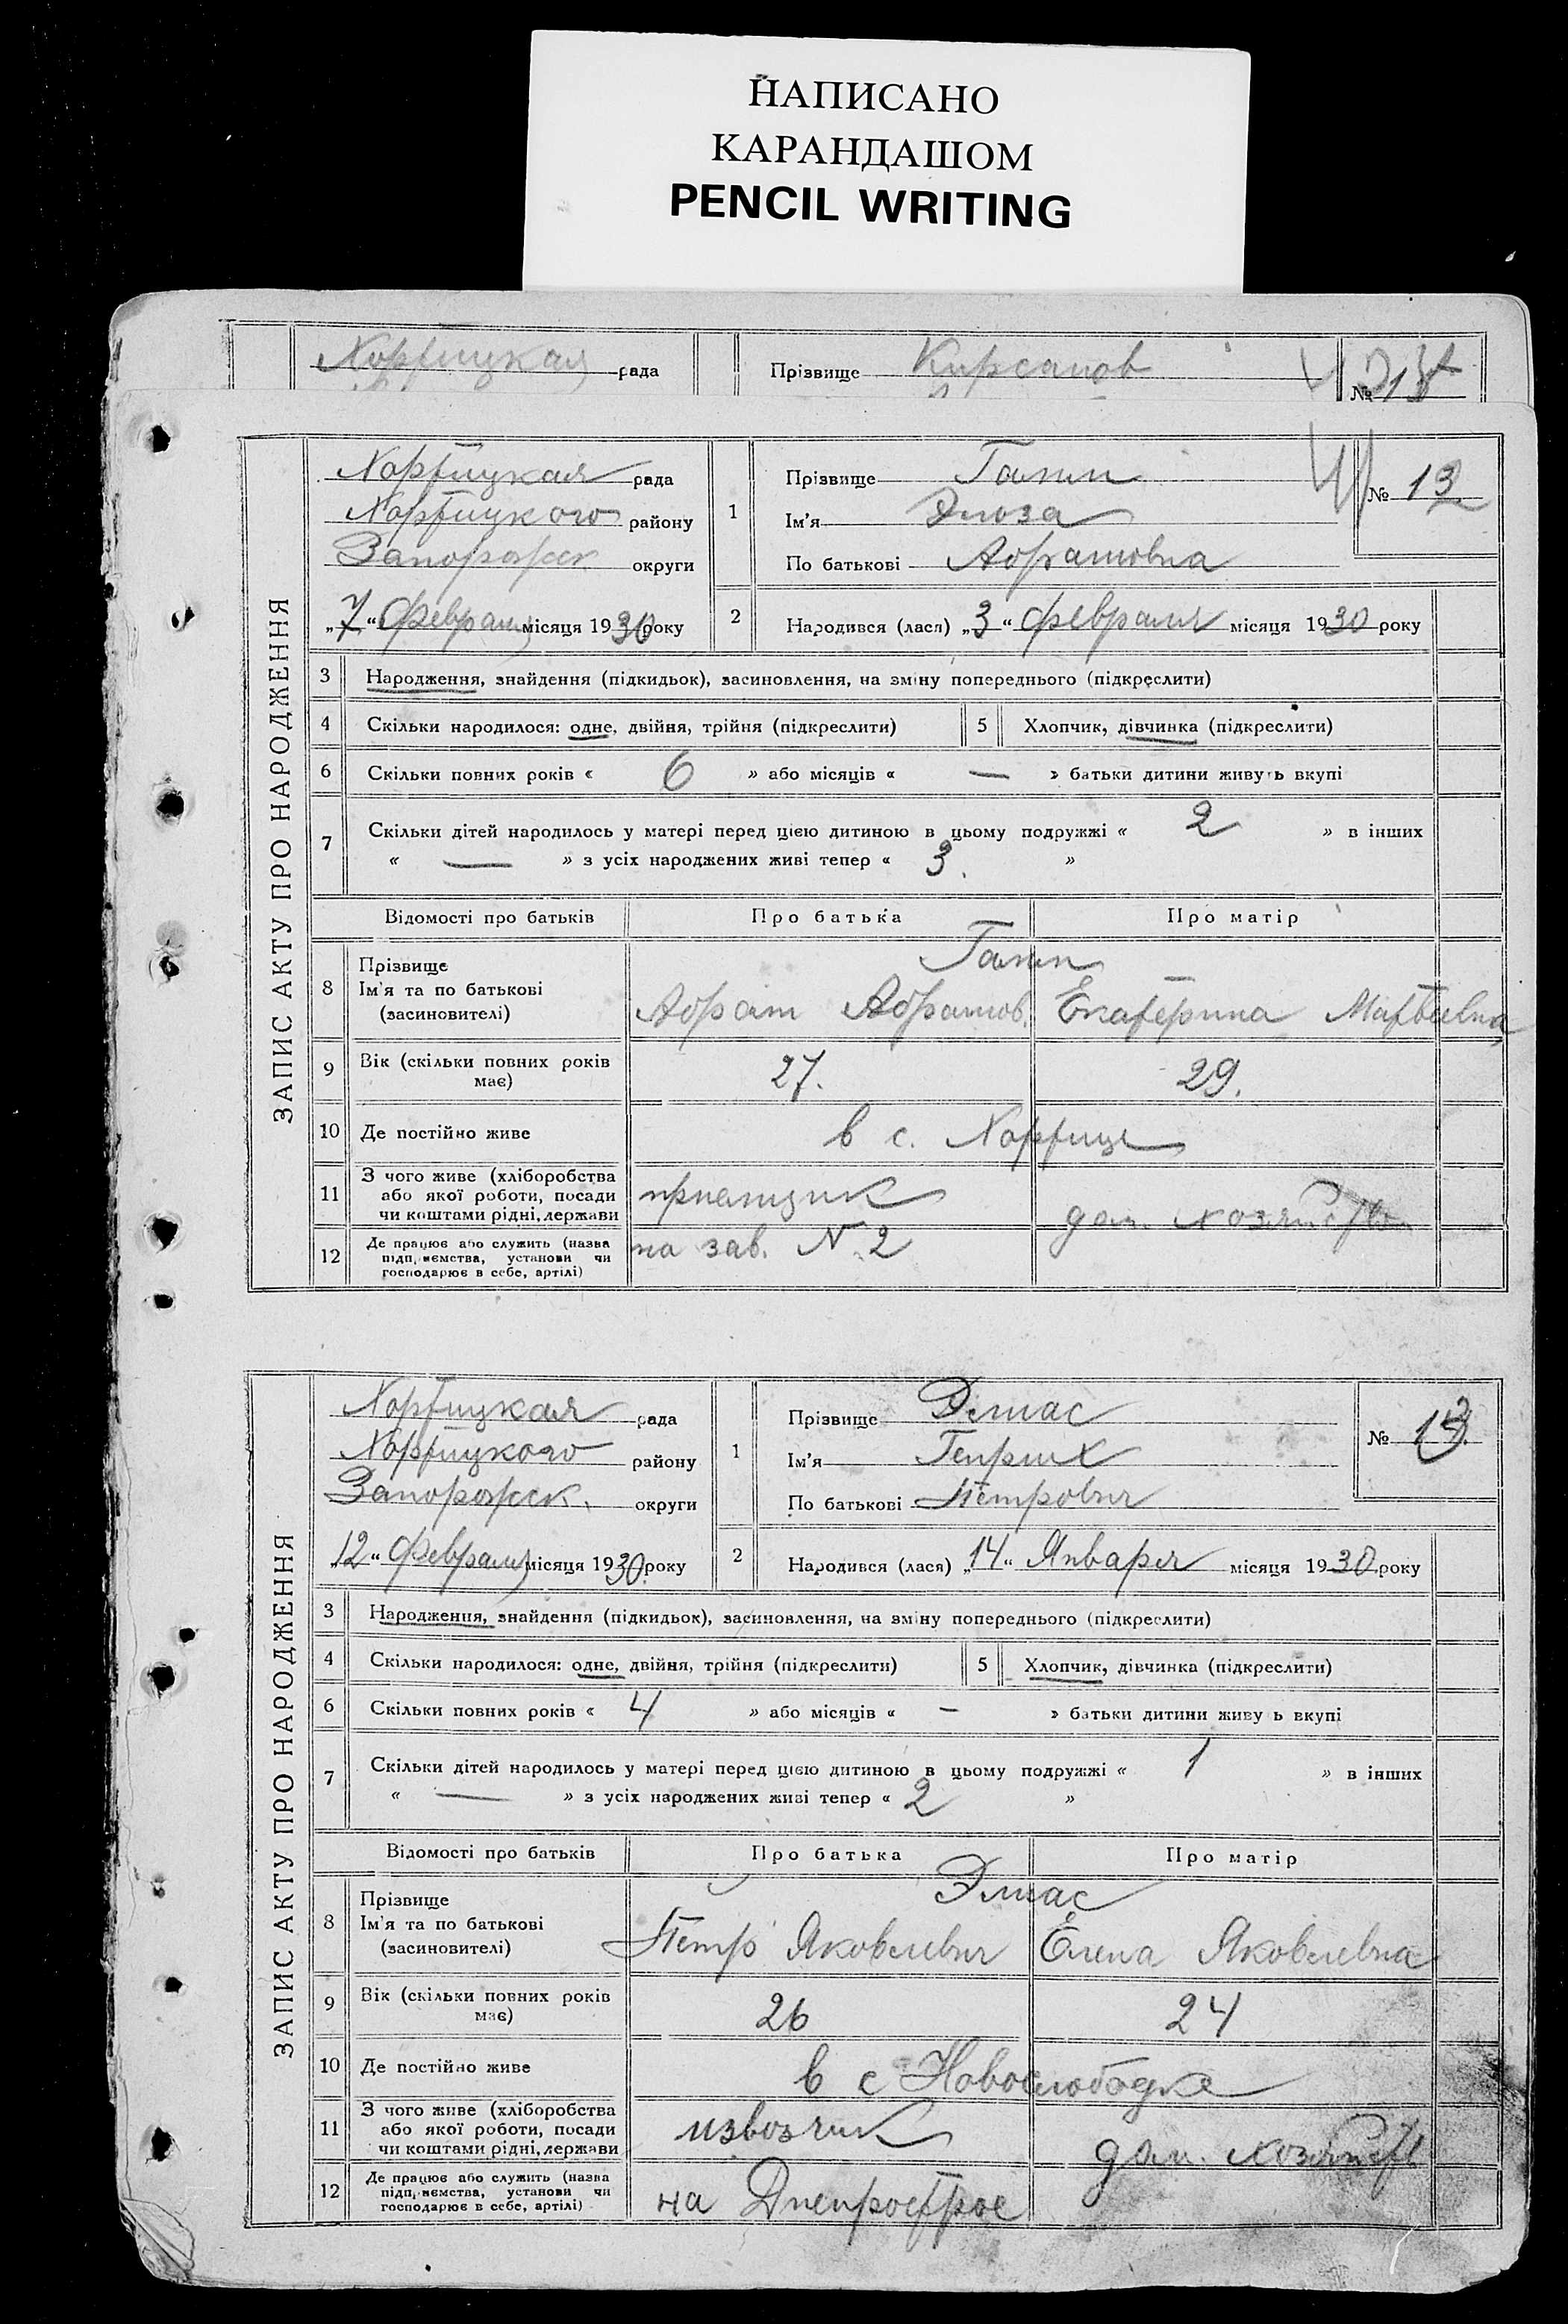 НАПИСАНО
КАРАНДАШОМ
PENCIL WRITING
Хортицкая рада
Прізвище Кирсанов
№
ЗАПИС АКТУ ПРО НАРОДЖЕННЯ
Хортицкая рада
Хортицкого району
Запорожск округи
„7“ Февраля місяця 1930 року
1
Прізвище
Ім'я
По батькові Абрамовна
№ 12
2
Народився (лася) „3“ февраля місяця 1930 року
3 Народження, знайдення (підкидьок), засиновлення, на зміну попереднього (підкреслити)
4 Скільки народилося: одне, двійня, трійня (підкреслити)
5 Хлопчик, дівчинка (підкреслити)
6 Скільки повних років « 6 » або місяців « — » батьки дитини живуть вкупі
7 Скільки дітей народилось у матері перед цією дитиною в цьому подружжі « 2 » в інших
« — » з усіх народжених живі тепер « 3. »
Відомості про батьків
Про батька
Про матір
8 Прізвище
Ім'я та по батькові
(засиновителі)
Абрам Абрамов.
Екатерина Матвеевна
9 Вік (скільки повних років
має)
27.
29.
10 Де постійно живе
в с. Хортице
11 З чого живе (хліборобства
або якої роботи, посади
чи коштами рідні, держави
дом. хозяйство
12 Де працює або служить (назва
підприємства, установи чи
господарює в себе, артілі)
на зав. N 2
ЗАПИС АКТУ ПРО НАРОДЖЕННЯ
Хортицкая рада
Хортицкого району
Запорожск. округи
„12“ Февраля місяця 1930. року
1
Прізвище Элиас
Ім'я Генрих
По батькові Петрович
№ 13
2
Народився (лася) „14“ Января місяця 1930. року
3 Народження, знайдення (підкидьок), засиновлення, на зміну попереднього (підкреслити)
4 Скільки народилося: одне, двійня, трійня (підкреслити)
5 Хлопчик, дівчинка (підкреслити)
6 Скільки повних років « 4 » або місяців « — » батьки дитини живу ь вкупі
7 Скільки дітей народилось у матері перед цією дитиною в цьому подружжі « 1 » в інших
« — » з усіх народжених живі тепер « 2 »
Відомості про батьків
Про батька
Про матір
8 Прізвище
Ім'я та по батькові
(засиновителі)
Элиас
Петр Яковлевич
Елена Яковлевна
9 Вік (скільки повних років
має)
26
24
10 Де постійно живе
в с Новослободке
11 З чого живе (хліборобства
або якої роботи, посади
чи коштами рідні, держави
извозчик
дом. хозяйств
12 Де працює або служить (назва
підприємства, установи чи
господарює в себе, артілі)
на Днепрострое